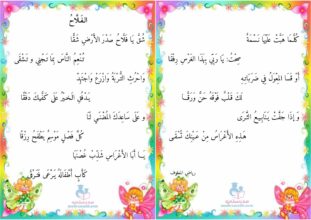 الفَلَّاحُ
شُقَّ يَا فَلَّاحُ صَدْرَ الْأَرْضِ شَقَّا
تَنْعَمِ النَّاسُ بِمَا تَجْنِي وَ تَشْقَى
وَاحْرُثِ التُّرْبَةَ وَازْرَعْ وَاجْتَهِدْ
يَدْفُقِ الْخَيْرُ عَلَى كَفَّيْكَ دَفْقًا
وَ عَلَى سَاعِدِكَ الْمُضْنَى لَنَا
كُلَّ فَصْلٍ مَوْسِمٌ يَطْفَحُ رِزْقًا
يَا أَبَا الْأَغْرَاسِ
كَأَبٍ أَطْفَالَهُ يَرْعَى
كُلَّمَا هَبَّتْ عَلَيْنَا نَسْمَةٌ
صِحْتَ: يَا رَبِّي بِهَذَا الْغَرْسِ رِفْقًا
أَوْ قَسَا الْمِعْوَلُ فِي ضَرَبَاتِهِ
لَكَ قَلْبٌ فَوْقَهُ حَنَّ وَرَقَّا
وَ إِذَا جَفَّتْ يَنَابِيعُ الثَّرَى
هَذِهِ الْأَغْرَاسُ مِنْ عَيْنِكَ تُسْقَى